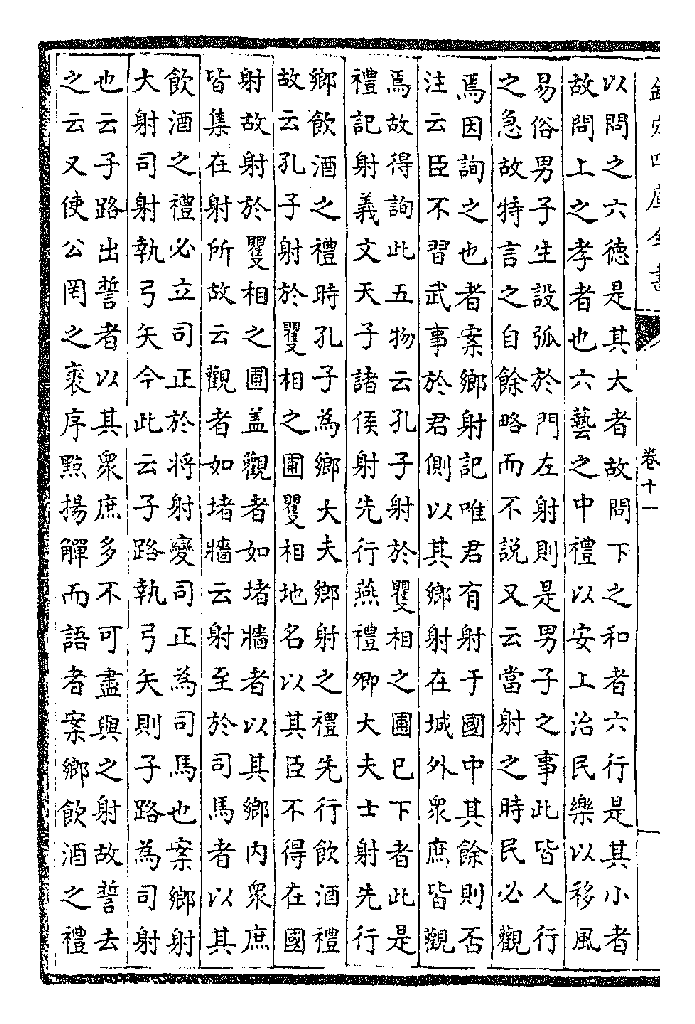 欽定四庫全書
卷十一
以問之六德是其大者故問下之和者六行是其小者
故問上之孝者也六藝之中禮以安上治民樂以移風
易俗男子生設弧於門左射則是男子之事此皆人行
之急故特言之自餘略而不說又云當射之時民必觀
焉因詢之也者案鄉射記唯君有射于國中其餘則否
注云臣不習武事於君側以其鄉射在城外衆庶皆觀
焉故得詢此五物云孔子射於矍相之圃已下者此是
禮記射義文天子諸侯射先行燕禮卿大夫士射先行
鄉飲酒之禮時孔子為鄉大夫鄉射之禮先行飲酒禮
故云孔子射於矍相之圃矍相地名以其臣不得在國
射故射於矍相之圃盖觀者如堵牆者以其鄉內衆庶
皆集在射所故云觀者如堵牆云射至於司馬者以其
飲酒之禮必立司正於將射變司正為司馬也案鄉射
大射司射執弓矢今此云子路執弓矢則子路為司射
也云子路出誓者以其衆庶多不可盡與之射故誓去
之云又使公罔之裘序㸃揚觶而語者案鄉飲酒之禮